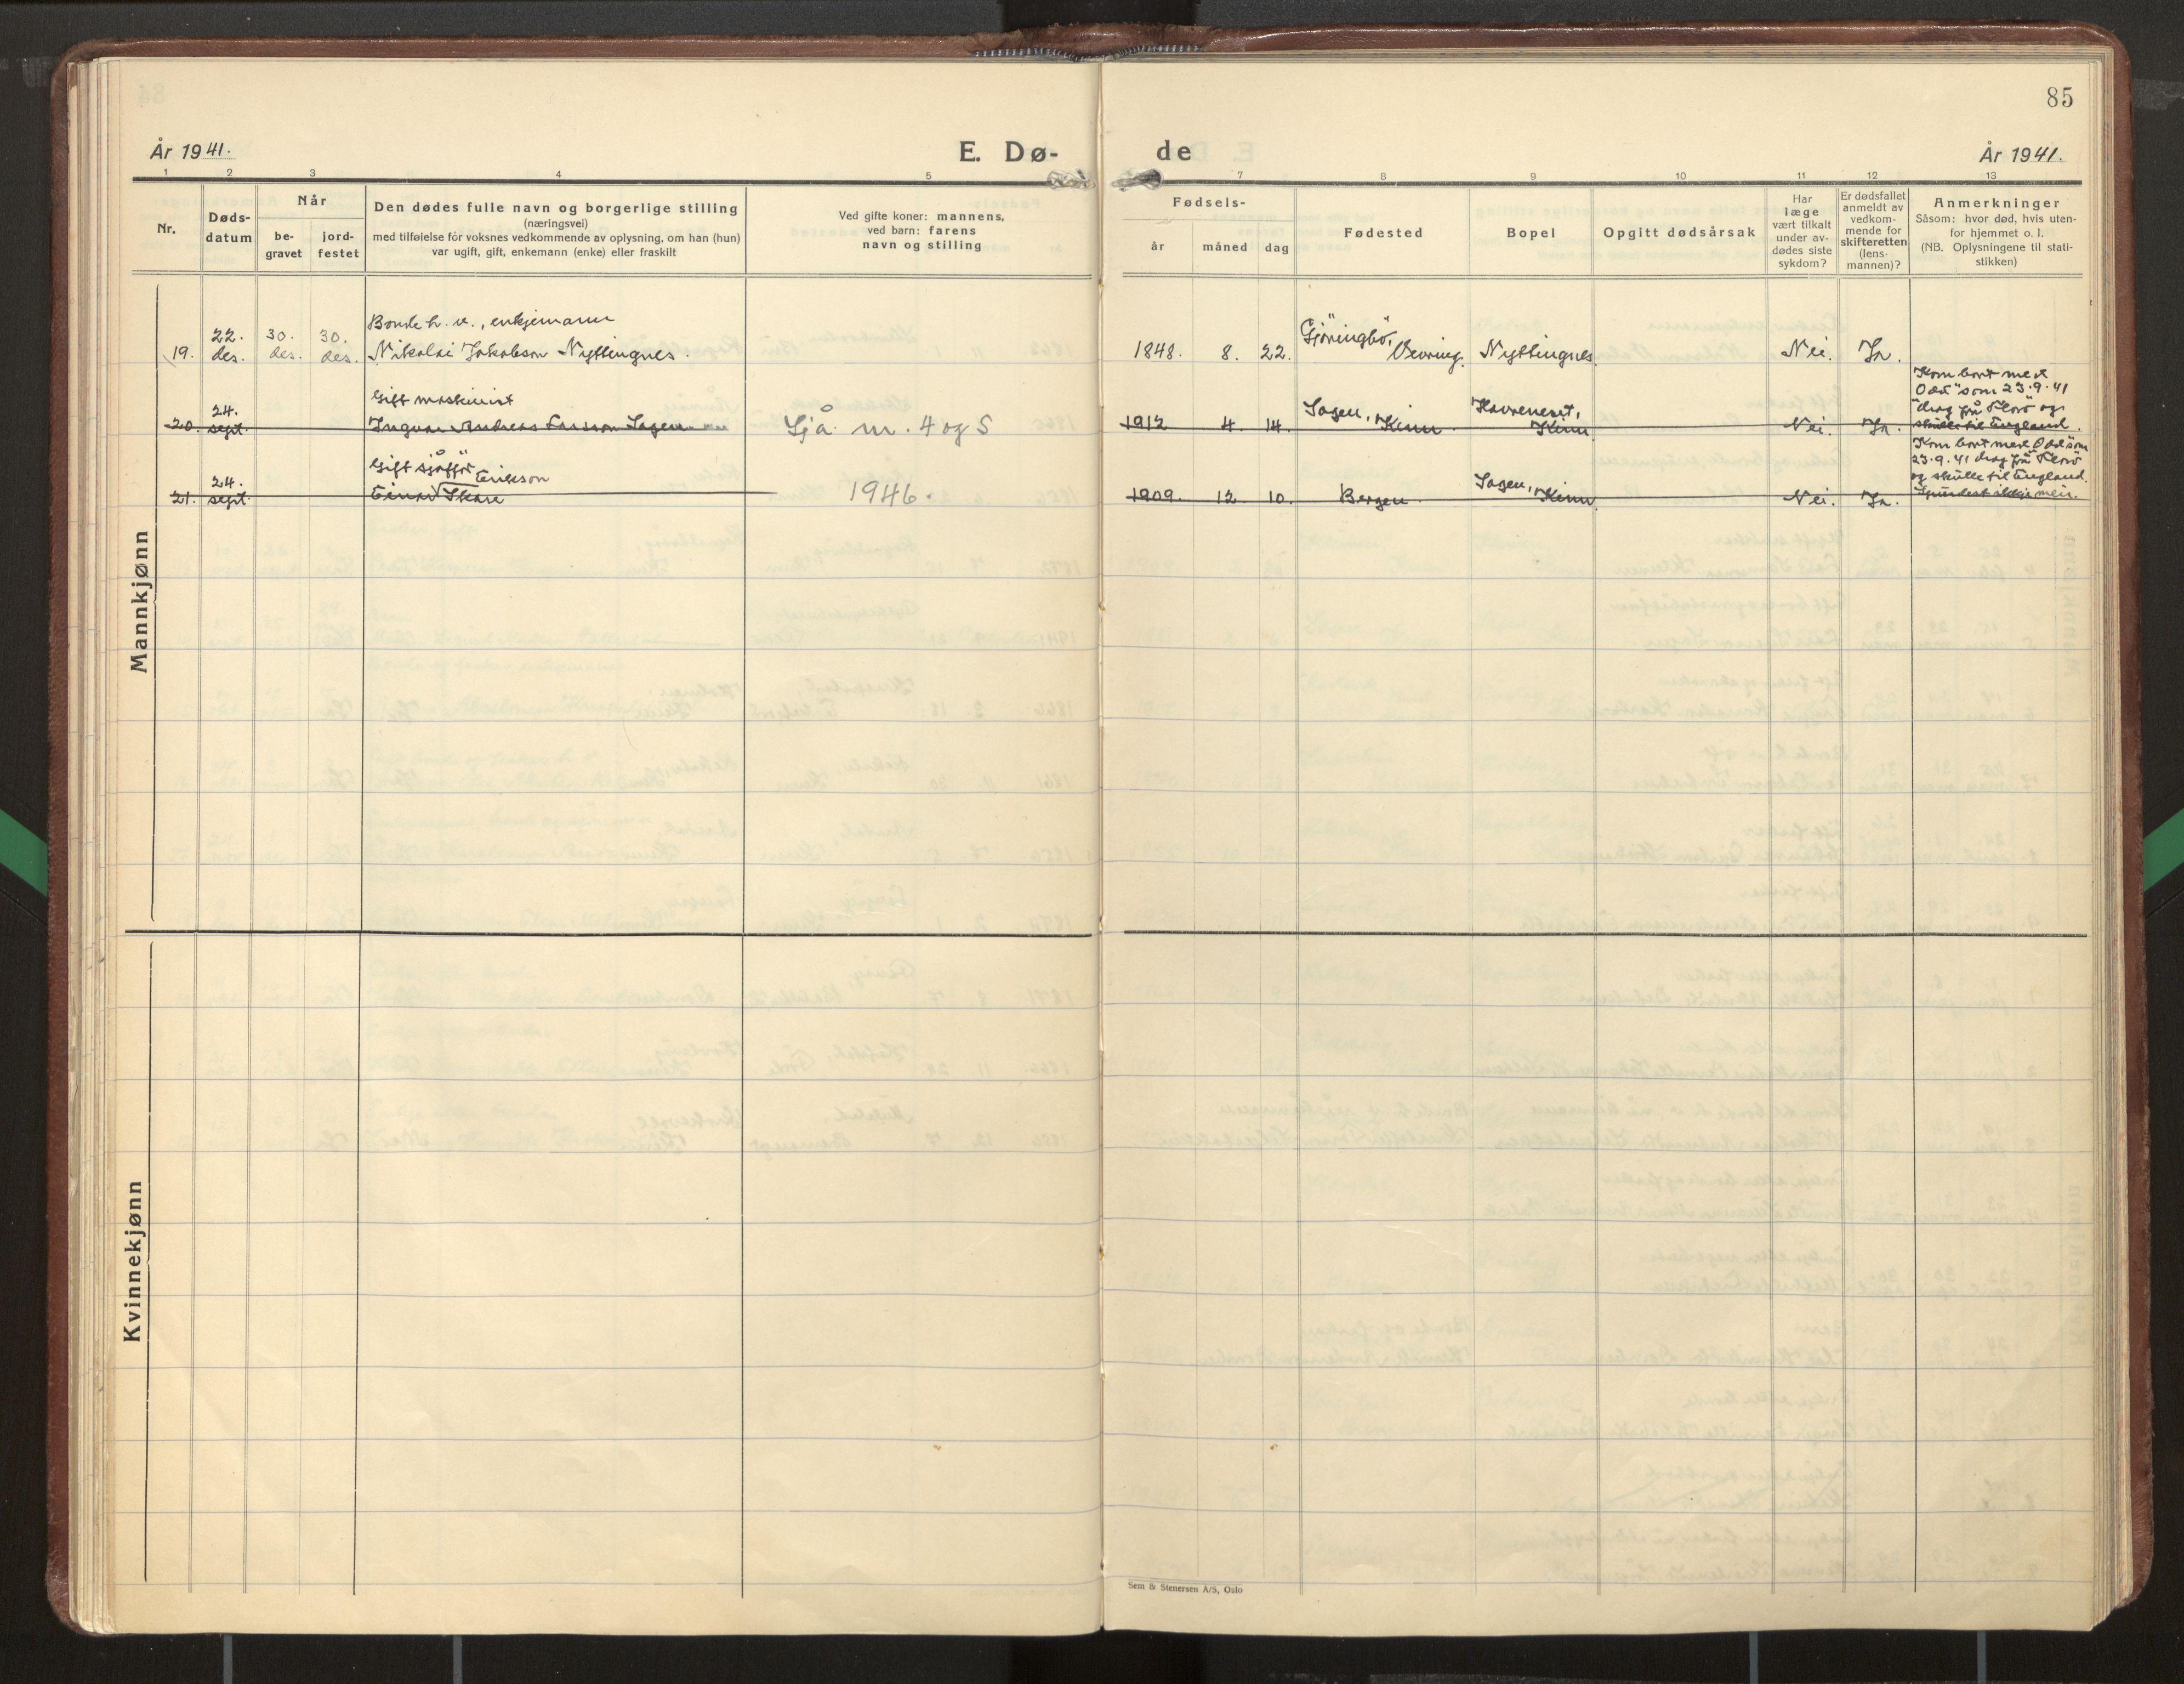 85
År 1941.
E. Dø-
de
År 1941.
1 2 3 4 5 7 8 9 10 11 12 13
Nr.
Døds-
datum
Når
be-
gravet
jord-
festet
Den dødes fulle navn og borgerlige stilling
(næringsvei)
med tilføielse for voksnes vedkommende av oplysning, om han (hun)
var ugift, gift, enkemann (enke) eller fraskilt
Ved gifte koner: mannens,
ved barn: farens
navn og stilling
Fødsels-
år måned dag
Fødested
Bopel
Opgitt dødsårsak
Har
læge
vært tilkalt
under av-
dødes siste
sykdom?
Er dødsfallet
anmeldt av
vedkom-
mende for
skifteretten
(lens-
mannen)?
Anmerkninger
Såsom: hvor død, hvis uten-
for hjemmet o. l.
(NB. Oplysningene til stati-
stikken)
Mannkjønn
19. 22. des. 30. des. 30. des.
Bonde h. v., enkjemann
Nikolai Jakobson Nyttingnes.
1848. 8. 22. Gjöringbö, Vevring. Nyttingnes Nei. Ja.
20. 24. sept.
Gift maskinist
Ingvar Andreas Larsson Sagen
Sjå nr. 4 og 5
1912 4 14. Sagen, Kinn Havreneset, Kinn Nei. Ja.
Kom bort med
"Odd" som 23.9.41
drog frå Florö og
skulle til England.
21. 24. sept.
Gift sjåfør
Einar Erikson Skare
1946.
1909. 12. 10. Bergen. Sagen, Kinn Nei. Ja.
Kom bort med "Odd" som
23.9.41 drog frå Florö
og skulle til England.
Spurdest ikkje meir.
Kvinnekjønn
Sem & Stenersen A/S, Oslo